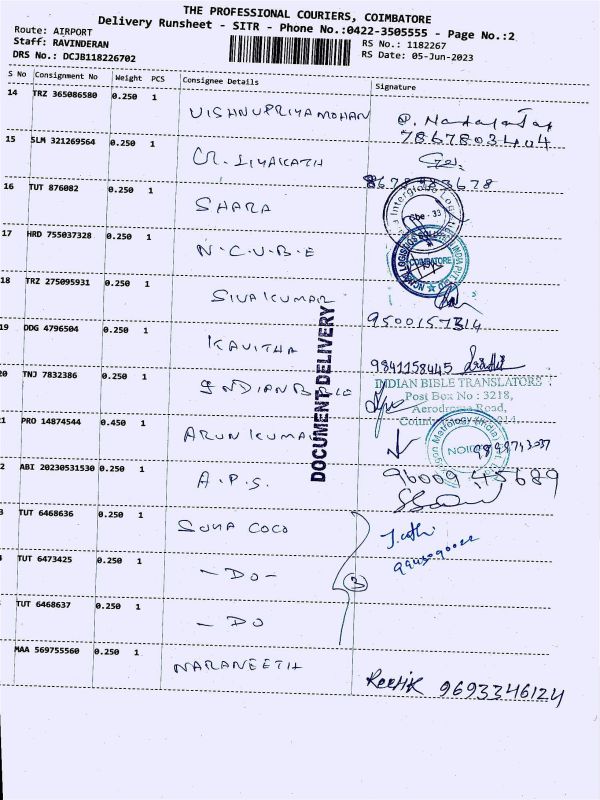 THE PROFESSIONAL COURIERS, COIMBATORE
Delivery Runsheet - SITR - Phone No.:0422-3505555 - Page No.:2
Route: AIRPORT
Staff: RAVINDERAN
DRS No.: DCJB118226702
RS No.: 1182267
RS Date: 05-Jun-2023
S No Consignment No Weight PCS Consignee Details Signature
14 TRZ 365086580 0.250 1 VISHNUPRIYA MOHAN
7867803404
15 SLM 321269564 0.250 1
16 TUT 876082 0.250 1 SHARA
17 HRD 755037328 0.250 1 N.C.U.B.E
COIMBATORE
18 TRZ 275095931 0.250 1 SIVAKUMAR
9500157314
19 DDG 4796504 0.250 1 KAVITHA 9841158445
DOCUMENT DELIVERY
20 TNJ 7832386 0.250 1 INDIAN
INDIAN BIBLE TRANSLATORS
Post Box No : 3218,
Aerodrome Road,
PRO 14874544 0.450 1 ARUN KUMAR
2 ABI 20230531530 0.250 1 A.P.S.
3 TUT 6468636 0.250 1 SUMA COCO
TUT 6473425 0.250 1 - DO -
3
TUT 6468637 0.250 1 - DO
MAA 569755560 0.250 1 NARANEETH
9693346124